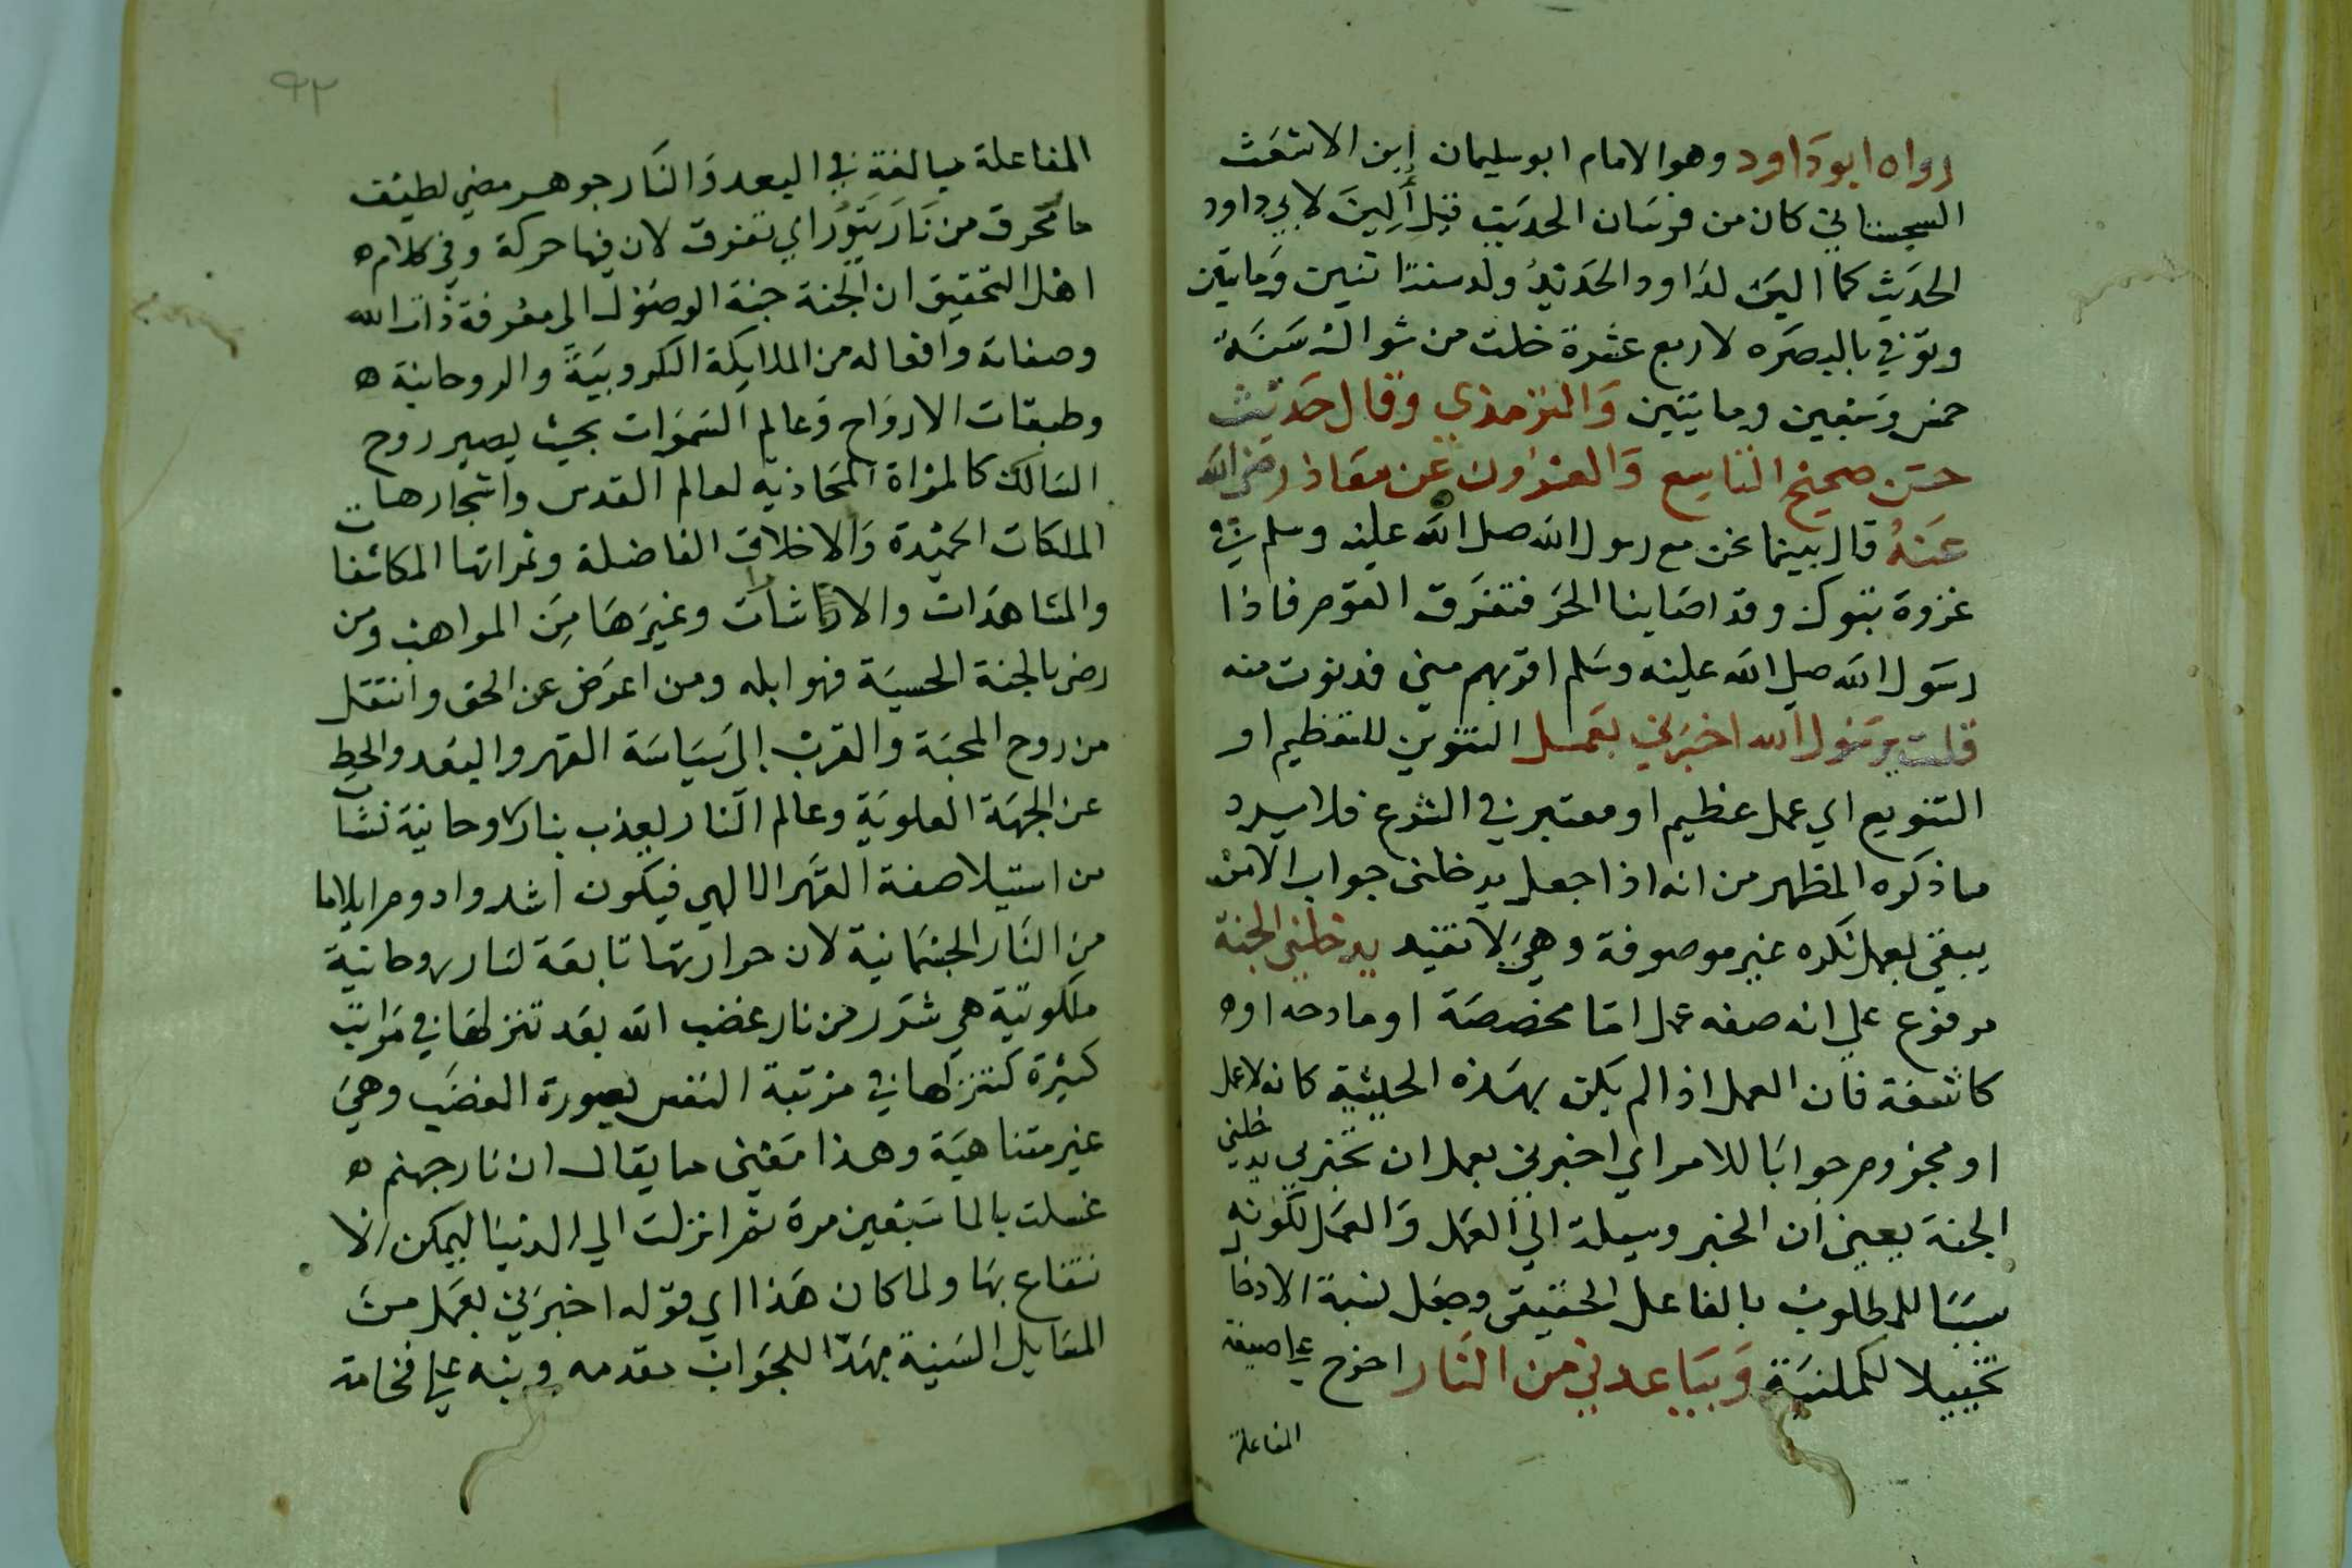 رواه ابو داود وهو الامام ابو سليمان إبن الاشعث
السجستاني كان من فرسان الحديث قيل أُلِينَ لابي داود
الحديث كما الين لداود الحديد ولد سنة اثنين ومايتين
وتوفي بالبصره لاربع عشرة خلت من شوال سنة
خمس وسبعين ومايتين والترمذي وقال حديث
حسن صحيح التاسع والعشرون عن معاذ رضي الله
عنه قال بينما نحن مع رسول الله صلى الله عليه وسلم في
غزوة تبوك وقد اصابنا الحر فتفرق القوم فاذا
رسول الله صلى الله عليه وسلم اقربهم مني فدنوت منه
قلت يرسول الله اخبرني بعمل التنوين للتعظيم او
التنويع اي عمل عظيم او معتبر في الشرع فلا يرد
ما ذكره المظهر من انه اذا جعل يدخلني جواب الامر
يبقى بعمل نكره غير موصوفة وهي لا تفيد يدخلني الجنة
مرفوع على انه صفه عمل اما مخصصة او مادحه او ه
كاشفة فان العمل اذا لم يكن بهذه الحيثية كانه لا عمل
او مجزوم جوابا للامر اي اخبرني بعمل ان تخبرني يدخلني
الجنة يعني ان الخبر وسيلة الى العمل والعمل لكونه
سببا للمطلوب بالفاعل الحقيقي وجعل نسبة الادخال
تخييلا لكملنية ويباعدني من النار اخرج على صيغة
المفاعلة
٩٢
المفاعلة مبالغة في البعد والنار جوهر مضي لطيف
ما محرق من نار ينور اي تفرق لان فيها حركة وفي كلام ه
اهل التحقيق ان الجنة جنة الوصول الى معرفة ذات الله
وصفاته وافعاله من الملايكة الكروبية والروحانية ه
وطبقات الارواح وعالم السموات بحيث يصير روح
السالك كالمراة المحاذية لعالم القدس واشجارها
الملكات الحميدة والاخلاق الفاضلة وثمراتها المكاشفات
والمشاهدات والاشارات وغيرها من المواهب ومن
رضي بالجنة الحسية فهو ابله ومن اعرض عن الحق وانتقل
من روح المحبة والقرب إلى سياسة القهر والبعد والحط
عن الجهة العلوية وعالم النار يعذب بنار روحانية نشات
من استيلا صفة القهر الالهي فيكون اشد وادوم ايلاما
من النار الجسمانية لان حرارتها تابعة لنار روحانية
ملكوتية هي شرر من نار غضب الله بعد تنزلها في مراتب
كثيرة كتنزلها في مرتبة النفس بصورة الغضب وهي
غير متناهية وهذا معنى ما يقال ان نار جهنم ه
غسلت بالما سبعين مرة ثم انزلت الى الدنيا ليمكن الا
نتفاع بها ولما كان هذا اي قوله اخبرني بعمل من
المسايل السنية مهد للجواب مقدمه وبنيه على فخامة